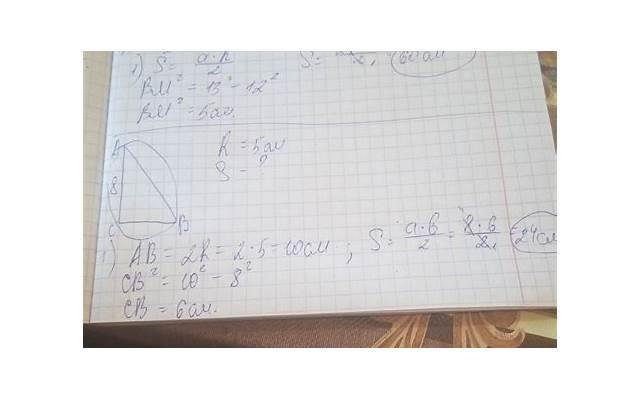 1) S = a·h/2 S = /2 60 см
BM² = 13² - 12²
BM² = 5 см.
A
R = 5 см
8
S - ?
C B
1) AB = 2R = 2·5 = 10 см ; S = a·b/2 = 8·6/2 = 24 см
CB² = 10² - 8²
CB = 6 см.